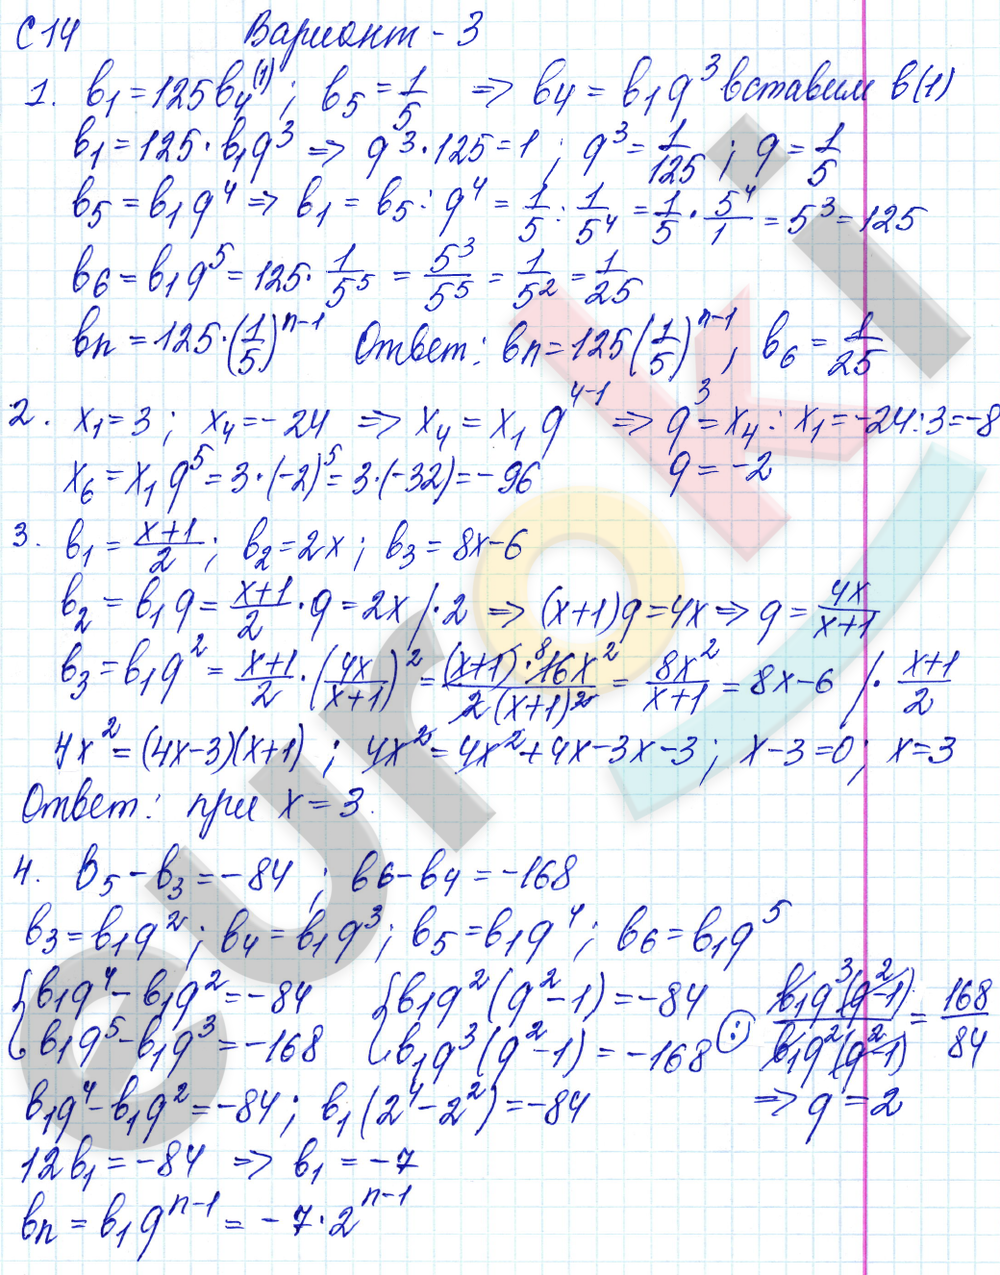 С 14 Вариант - 3
1. b₁ = 125b₄⁽¹⁾ ; b₅ = 1/5 => b₄ = b₁q³ вставим в(1)
b₁ = 125 · b₁q³ => q³ · 125 = 1 ; q³ = 1/125 ; q = 1/5
b₅ = b₁q⁴ => b₁ = b₅ : q⁴ = 1/5 : 1/5⁴ = 1/5 · 5⁴/1 = 5³ = 125
b₆ = b₁q⁵ = 125 · 1/5⁵ = 5³/5⁵ = 1/5² = 1/25
bn = 125 · (1/5)ⁿ⁻¹ Ответ: bn = 125(1/5)ⁿ⁻¹, b₆ = 1/25
2. x₁ = 3 ; x₄ = -24 => x₄ = x₁ q⁴⁻¹ => q³ = x₄ : x₁ = -24 : 3 = -8
x₆ = x₁q⁵ = 3 · (-2)⁵ = 3 · (-32) = -96 q = -2
3. b₁ = (x+1)/2 ; b₂ = 2x ; b₃ = 8x-6
b₂ = b₁q = (x+1)/2 · q = 2x /· 2 => (x+1)q = 4x => q = 4x/(x+1)
b₃ = b₁q² = (x+1)/2 · (4x/(x+1))² = (x+1) · ⁸16x²/2(x+1)² = 8x²/(x+1) = 8x-6 /· (x+1)/2
4x² = (4x-3)(x+1) ; 4x² = 4x² + 4x - 3x - 3 ; x - 3 = 0 ; x = 3
Ответ: при x = 3.
4. b₅ - b₃ = -84 ; b₆ - b₄ = -168
b₃ = b₁q² ; b₄ = b₁q³ ; b₅ = b₁q⁴ ; b₆ = b₁q⁵
{b₁q⁴ - b₁q² = -84 {b₁q²(q²-1) = -84 b₁q³(q²-1)/b₁q²(q²-1) = 168/84
b₁q⁵ - b₁q³ = -168 b₁q³(q²-1) = -168 (:)
b₁q⁴ - b₁q² = -84 ; b₁(2⁴ - 2²) = -84 => q = 2
12b₁ = -84 => b₁ = -7
bn = b₁qⁿ⁻¹ = -7 · 2ⁿ⁻¹
euroki